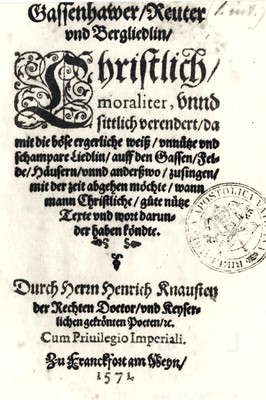 Gassenhawer/Reuter
vnd Bergliedlin/
Christlich/
moraliter, vnnd
sittlich verendert/da
mit die böse ergerliche weiß/ vnnütze vnd
schampare Liedlin/ auff den Gassen/Fel-
de/Häusern/vnnd anderßwo/zusingen/
mit der zeit abgehen möchte/ wann
mann Christliche/ güte nütze
Texte vnd wort darun-
der haben köndte.
Durch Herrn Henrich Knausten
der Rechten Doctor/vnd Keyser-
lichen gekrönten Poeten/ꝛc.
Cum Priuilegio Imperiali.
Zu Franckfort am Meyn/
1571.